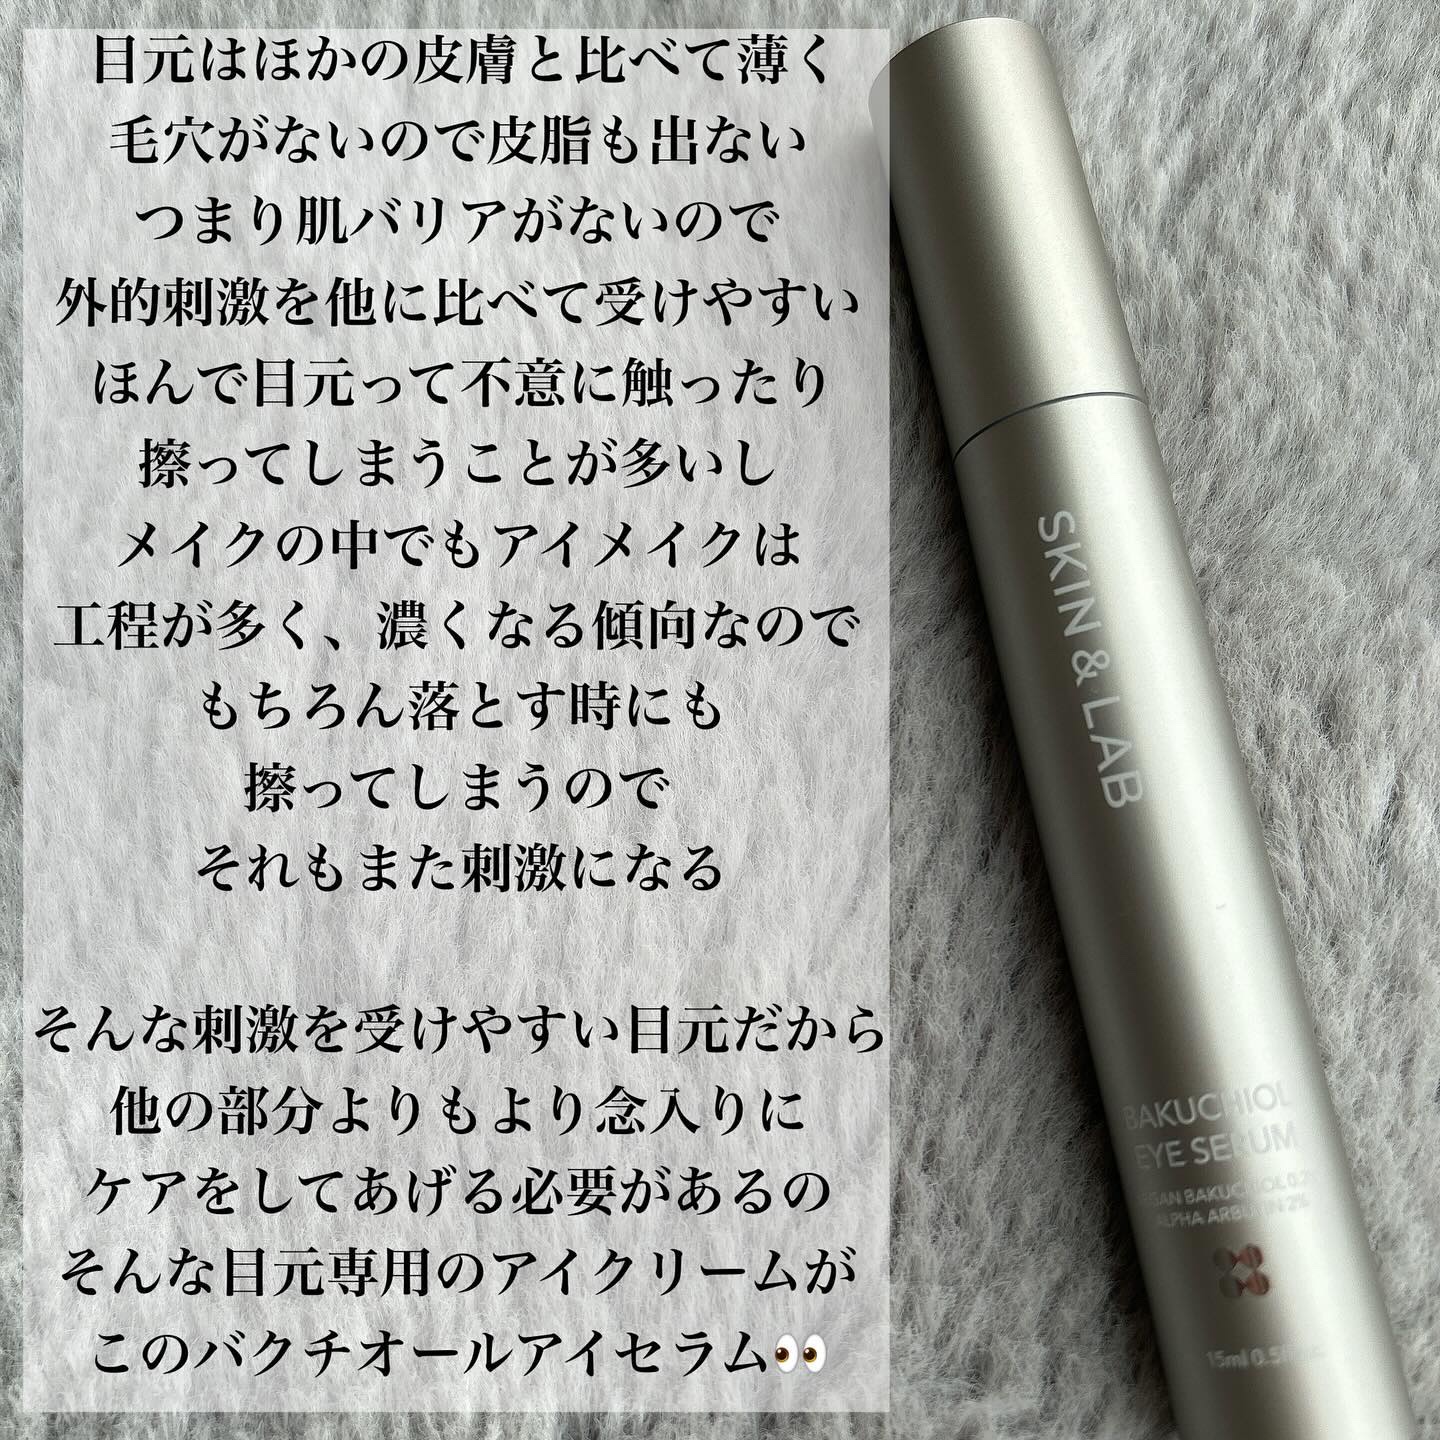 目元はほかの皮膚と比べて薄く
毛穴がないので皮脂も出ない
つまり肌バリアがないので
外的刺激を他に比べて受けやすい
ほんで目元って不意に触ったり
擦ってしまうことが多いし
メイクの中でもアイメイクは
工程が多く、濃くなる傾向なので
もちろん落とす時にも
擦ってしまうので
それもまた刺激になる
そんな刺激を受けやすい目元だから
他の部分よりもより念入りに
ケアをしてあげる必要があるの
そんな目元専用のアイクリームが
このバクチオールアイセラム👀
SKIN & LAB
BAKUCHIOL
EYE SERUM
BAKUCHIOL
ALPHA ARBUTIN 2%
15ml